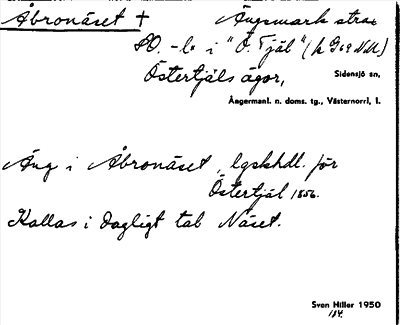 Åbronäset + Ängsmark strax
SO. -l. i "Ö. Tjäl" (h G:a N.M.)
Östertjäls ägor, Sidensjö sn,
Ångermanl. n. doms. tg., Västernorrl, l.
Äng i Åbronäset, lgskhdl. för
Östertjäl 1856.
Kallas i dagligt tal Näset.
Sven Hiller 1950
184.